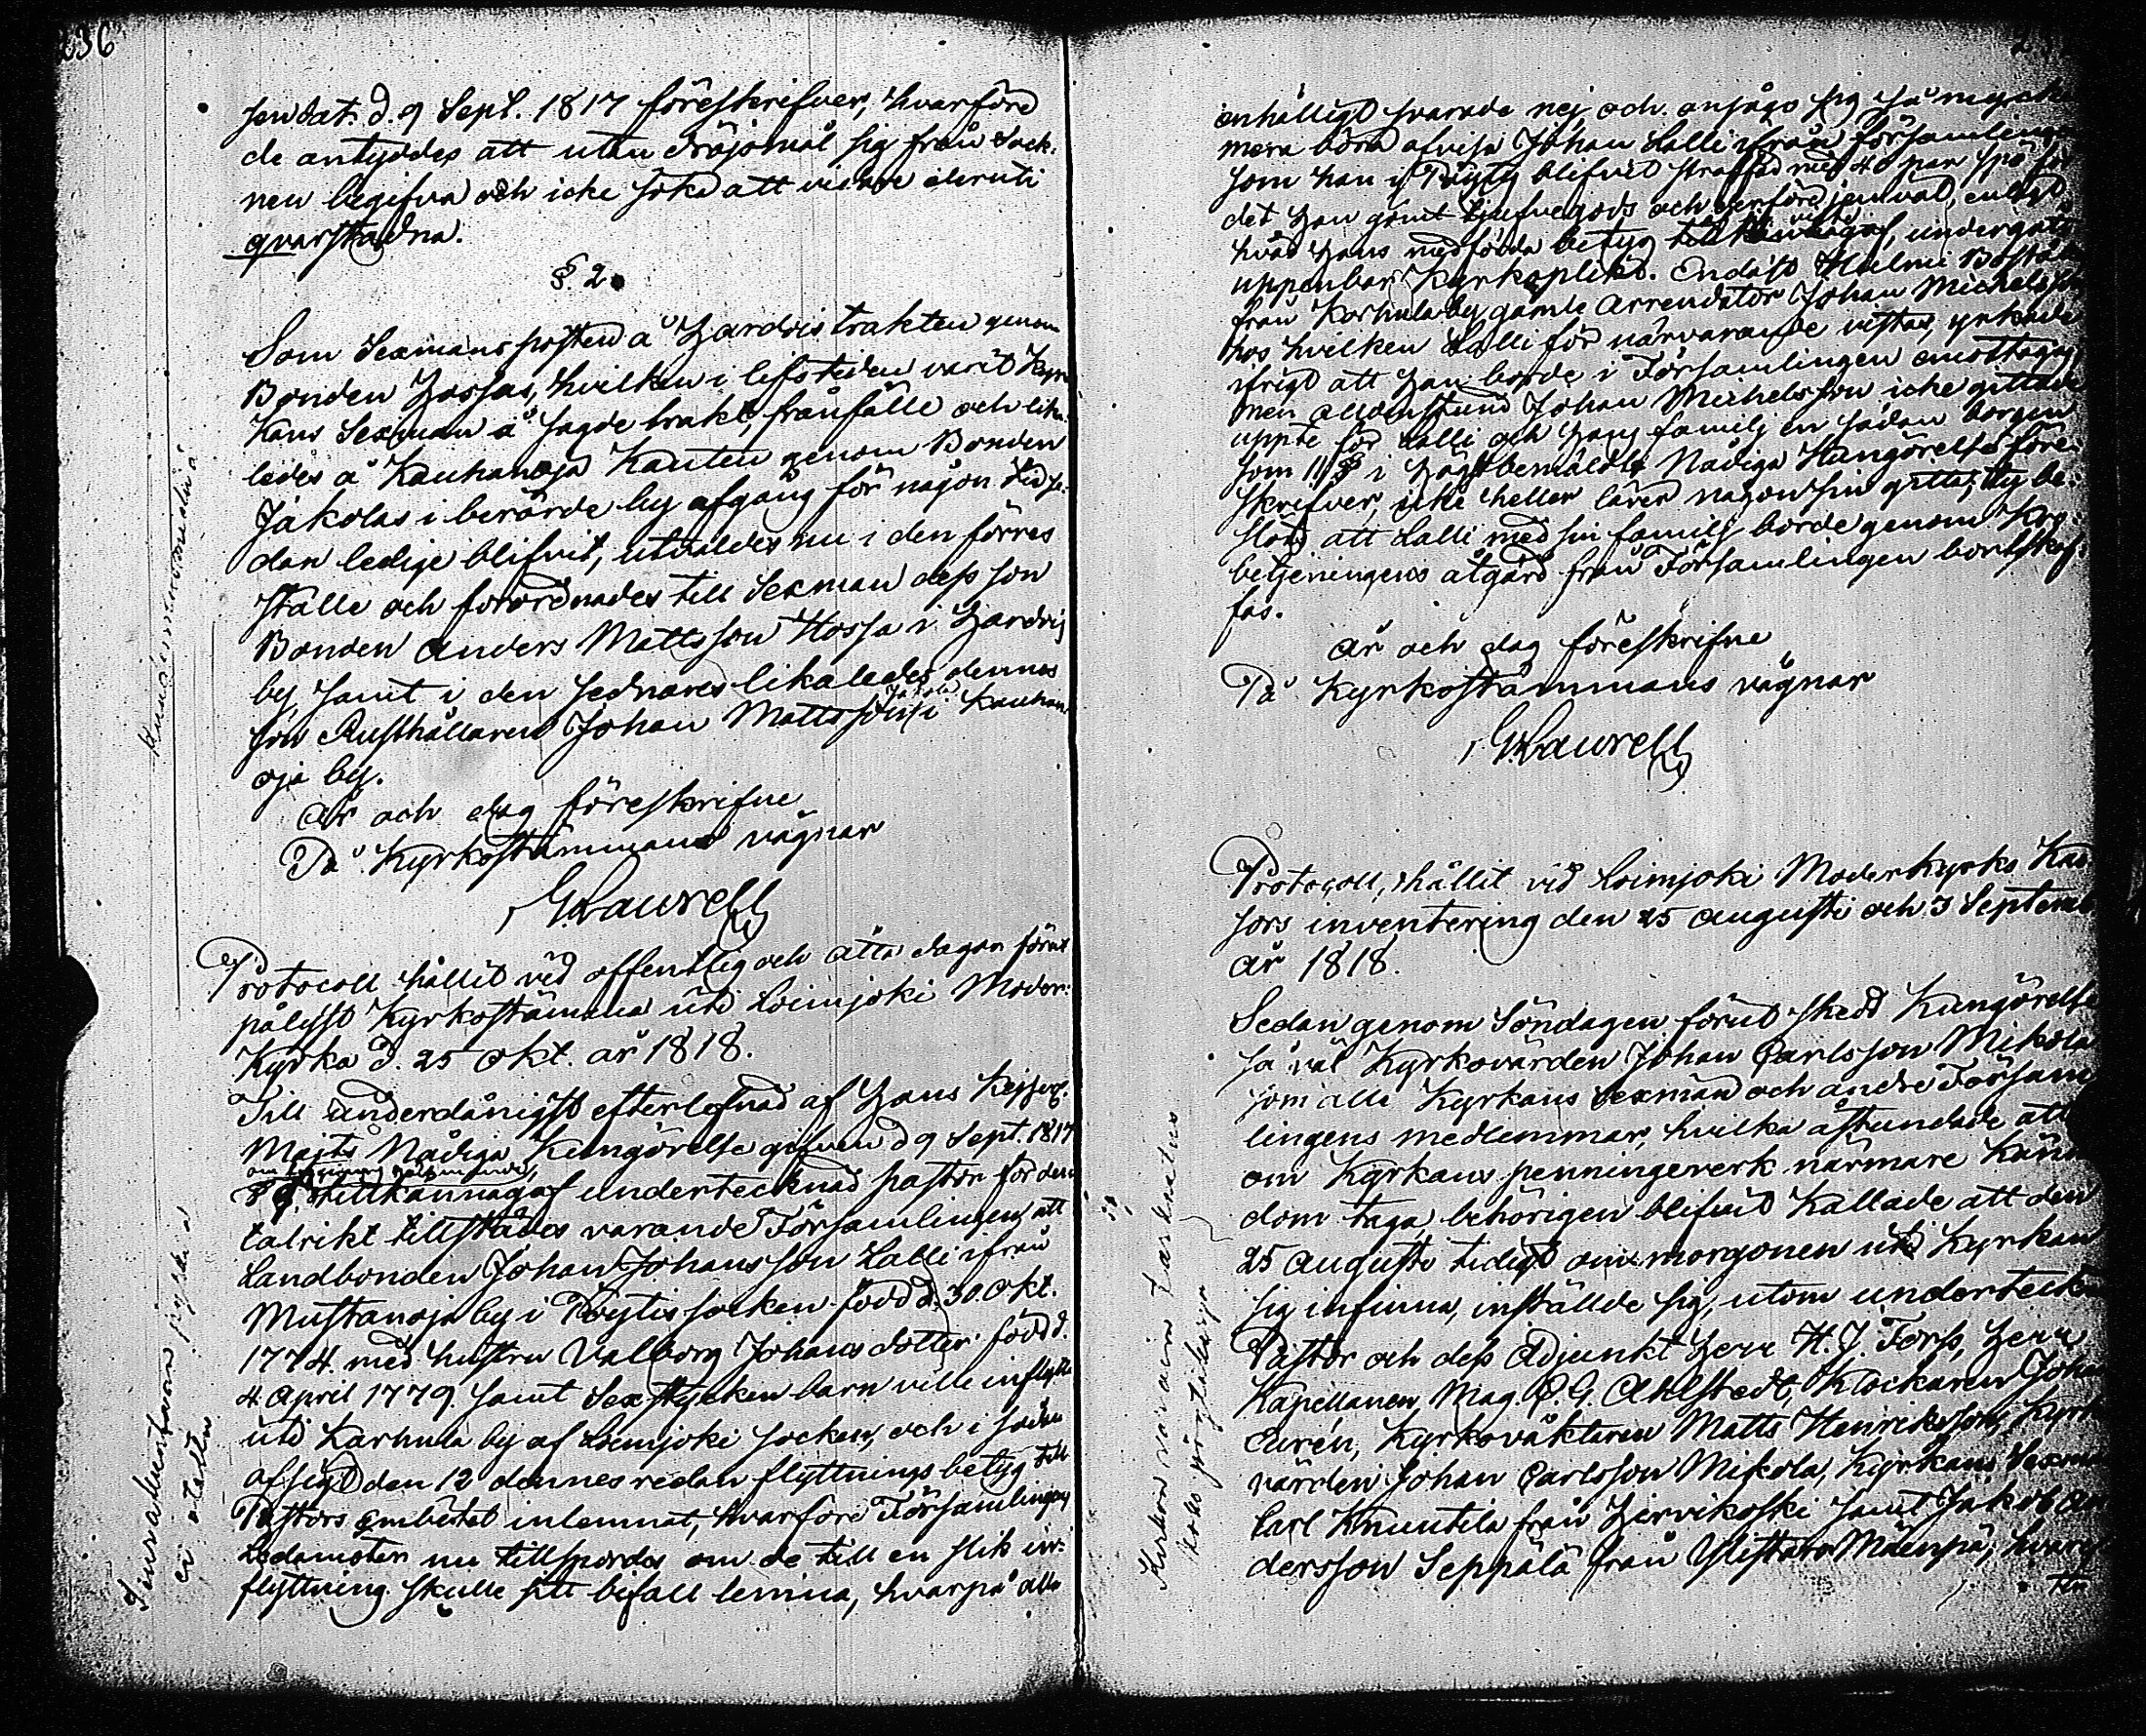 236
sen dat. d. 9 Sept. 1817 föreskrifver, hvarföre
de antyddes att utan dröjsmål sig från Sock-
nen begifva och icke söka att vidare deruti
qvarstadna.
§. 2.
Som Sexmans posten å Hardvis trakten genom
Bonden Hossas, hvilken i lifstiden varit Kyr-
kans Sexman å sagde trakt, frånfälle och lika-
ledes å Kauhanoja Kanten genom Bonden
Jakolas i berörde by afgång för någon tid se-
dan ledige blifvit, utvaldes nu i den förres
ställe och förordnades till Sexman dess son
Bonden Anders Mattsson Hossa i Hardvis
by, samt i den sednares likaledes dennes
son Rusthållaren Johan Mattsson Jakola i Kauhan-
oja by.
År och dag föreskrifne
På Kyrkostämmans vägnar
G. Laurell
Protocoll hållit vid offentlig och åtta dagar förut
pålyst Kyrkostämma uti Loimjoki Moder-
Kyrka d. 25 Okt. år 1818.
Till underdånigst efterlefnad af Hans Kejserl.
Majts Nådiga Kungörelse gifven d 9 Sept. 1817
tillkännagaf undertecknad pastor för den
talrikt tillstädes varande Församlingen, att
Landbonden Johan Johansson Lalli ifrån
Mustanoja by i Pöytis socken född d. 30 Okt.
1774. med hustru Valborg Johans dotter född d.
4 April 1779. samt Sex stycken barn ville inflytta
uti Karhula by af Loimjoki socken, och i sådan
afsigt den 12 dennes redan flyttnings betyg till
Pastors embetet inlemnat, hvarföre Församlingens
Ledamöter nu tillspordes om de till en slik in-
flyttning skulle sitt bifall lemna, hvarpå alla
enhälligt svarade nej, och ansågo sig så mycket
mera böra afvisa Johan Lalli ifrån församlingen
som han i Pöytis blifvit straffad med 40 par spö för
det han gömt tjufvegods och derföre jemväl, enligt
hvad hans medförda betyg, undergått
uppenbar Kyrkoplikt. Endast
från Karhula by gamle Arrendator Johan Michelsson
hos hvilken Lalli för närvarande vistas, yrkade
ifrigt att han borde i Församlingen emottagas,
men alldenstund Johan Michelsson icke gittade
uppte för Lalli och hans familj en sådan borgen
som 11 § i högstbemäldte Nådiga Kungörelse före-
skrifver, icke heller lärer någonsin gitta; ty be-
slöts att Lalli med sin familj borde genom Kro-
betjeningens åtgärd från Församlingen bortskaf-
fas.
År och dag föreskrifne
På Kyrkostämmans vägnar
G. Laurell
Protocoll, hållit vid Loimjoki Moderkyrko Kas-
sors inventering den 25 Augusti och 3 Septemb
år 1818.
Sedan genom Söndagen förut skedd Kungörelse
så väl Kyrkovärden Johan Carlsson Mikola
som alle Kyrkans Sexmän och andre Försam-
lingens medlemmar, hvilka åstundade att
om Kyrkans penningeverk närmare känne-
dom taga, behörigen blifvit kallade att den
25 Augusti tidigt om morgonen uti Kyrkan
sig infinna, inställde sig, utom undertecknad
Pastor och dess Adjunkt Herr H. J. Forss, Herr
Kapellanen, Mag. C. G. Ahlstedt, Klockaren Johan
Curén, Kyrkoväktaren Matts Henriksson, Kyrko-
värden Johan Carlsson Mikola, Kyrkans Sexman
Carl Knuutila från Hirvikoski samt Jakob An-
dersson Seppälä från Ylistaro Mäenpä, hvar